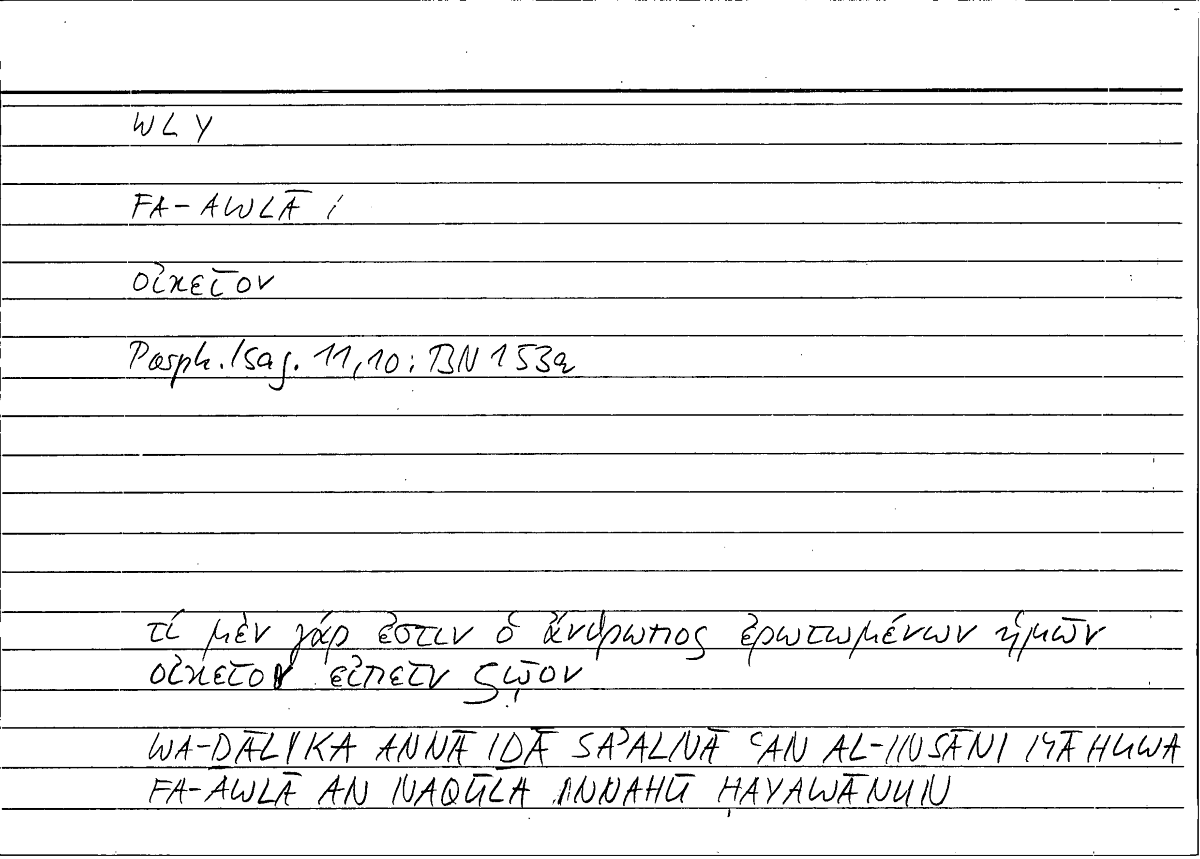 WLY
FA-AWLĀ i
οἰκεῖον
Porph. Isag. 11,10: BN 153a
τί μὲν γάρ ἐστιν ὁ ἄνθρωπος ἐρωτωμένων ἡμῶν
οἰκεῖον εἰπεῖν ζῷον
WA-DĀLIKA ANNĀ IDĀ SAʾALNĀ ʿAN AL-INSĀNI MĀ HUWA
FA-AWLĀ AN NAQŪLA INNAHŪ ḤAYAWĀNUN